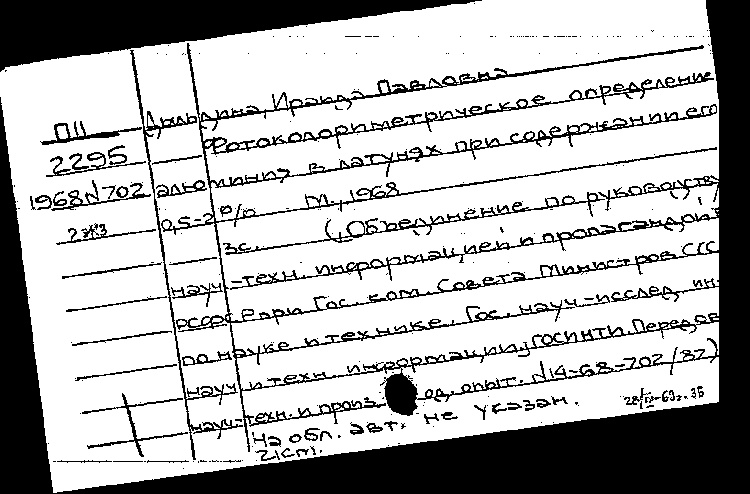 П11
2295
1968 N 702
2 экз
Дыльдина, Ираида Павловна
Фотоколориметрическое определение
алюминия в латунях при содержании его
0,5-2 % М., 1968
3с. (Объединение по руководству
науч-техн. информацией и пропагандой в
РСФСР при Гос. ком. Совета Министров ССС
по науке и технике. Гос. науч-исслед. ин-
науч и техн. информации, ГОСИНТИ Передов
науч-техн. и произ. опыт. N 14-68-702/82)
На обл. авт. не указан.
21см.